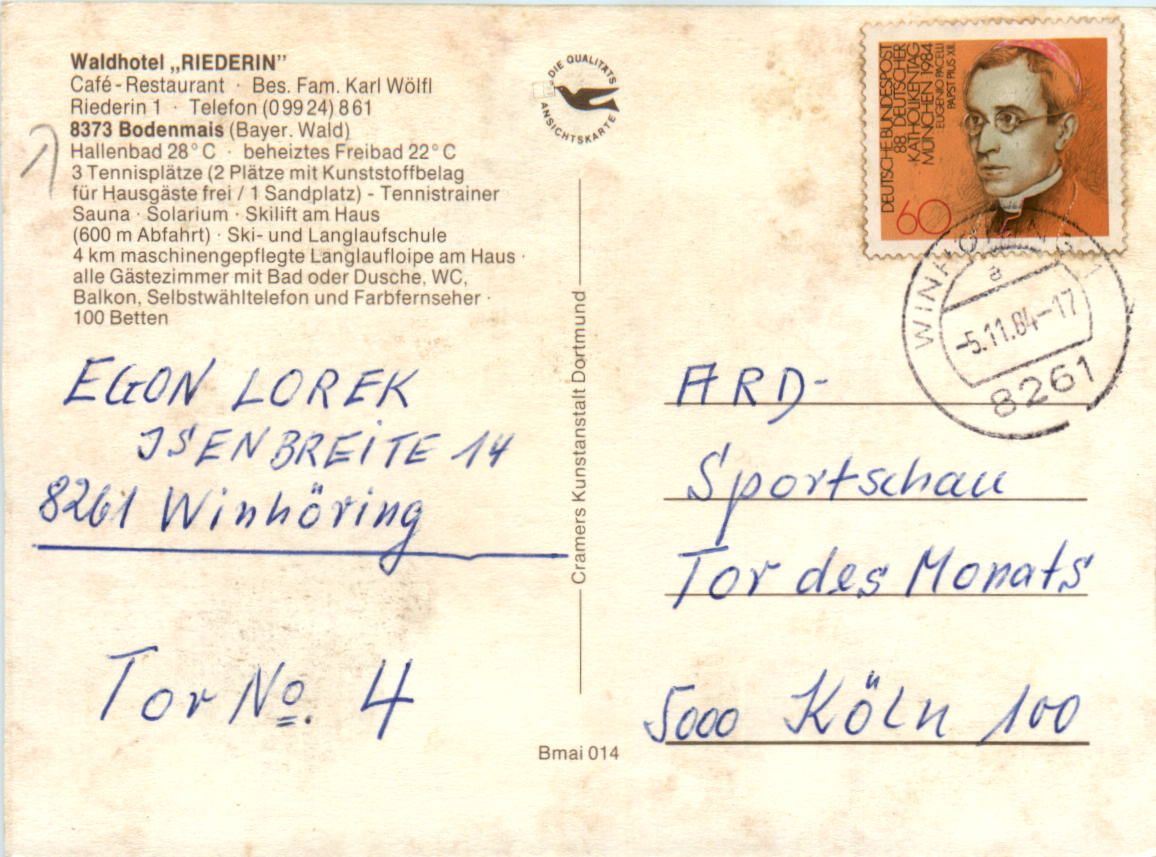 Waldhotel „RIEDERIN”
Café-Restaurant · Bes. Fam. Karl Wölfl
Riederin 1 · Telefon (09924) 861
8373 Bodenmais (Bayer. Wald)
Hallenbad 28° C · beheiztes Freibad 22° C
3 Tennisplätze (2 Plätze mit Kunststoffbelag
für Hausgäste frei / 1 Sandplatz) - Tennistrainer
Sauna · Solarium · Skilift am Haus
(600 m Abfahrt) · Ski- und Langlaufschule
4 km maschinengepflegte Langlaufloipe am Haus ·
alle Gästezimmer mit Bad oder Dusche, WC,
Balkon, Selbstwähltelefon und Farbfernseher ·
100 Betten
EGON LOREK
ISENBREITE 14
8261 Winhöring
Tor No. 4
DIE QUALITÄTS
ANSICHTSKARTE
Cramers Kunstanstalt Dortmund
Bmai 014
DEUTSCHE BUNDESPOST
88. DEUTSCHER
KATHOLIKENTAG
MÜNCHEN 1984
EUGENIO PACELLI
PAPST PIUS XII.
60
WINHÖRING
a
-5.11.84-17
8261
ARD-
Sportschau
Tor des Monats
5000 Köln 100